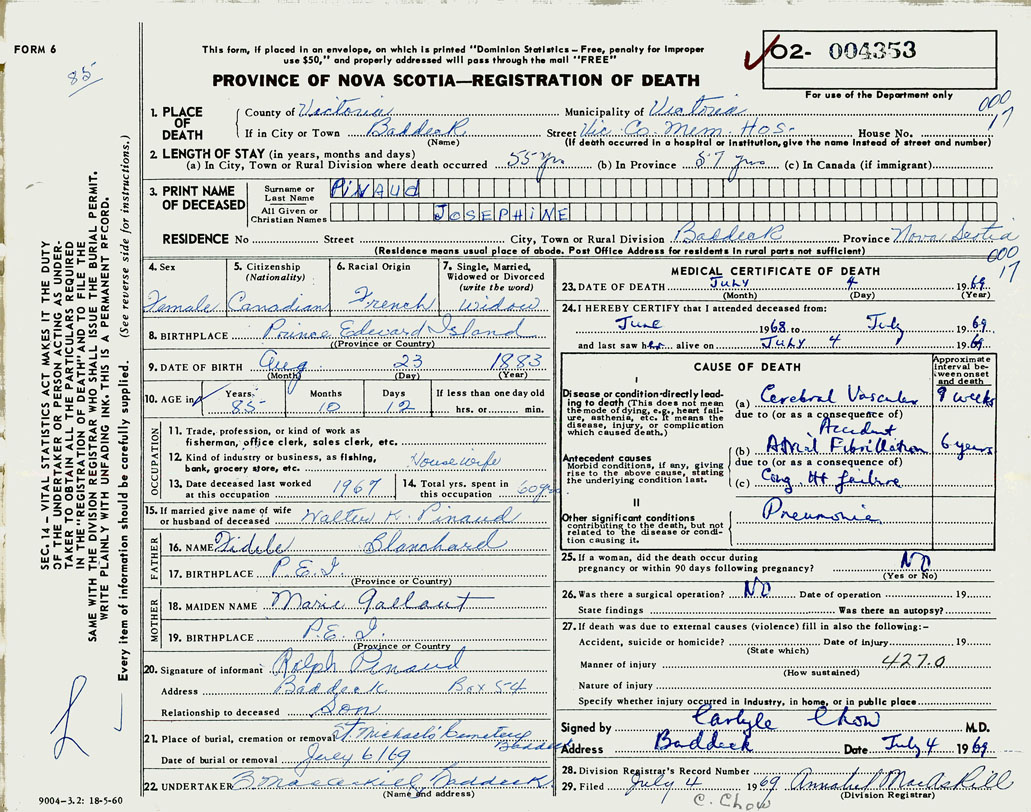 FORM 6
85
This form, if placed in an envelope, on which is printed "Dominion Statistics – Free, penalty for improper
use $50," and properly addressed will pass through the mail "FREE"
PROVINCE OF NOVA SCOTIA—REGISTRATION OF DEATH
✓02- 004353
For use of the Department only
000
17
1. PLACE OF DEATH
County of Victoria Municipality of Victoria
If in City or Town Baddeck Street Vic. Co. Mem. Hos. House No.
(Name) (If death occurred in a hospital or institution, give the name instead of street and number)
2. LENGTH OF STAY (in years, months and days)
(a) In City, Town or Rural Division where death occurred 55 yrs (b) In Province 57 yrs (c) In Canada (if immigrant)
3. PRINT NAME OF DECEASED
Surname or Last Name PINAUD
All Given or Christian Names JOSEPHINE
RESIDENCE No Street City, Town or Rural Division Baddeck Province Nova Scotia
(Residence means usual place of abode. Post Office Address for residents in rural parts not sufficient)
000
17
4. Sex
Female
5. Citizenship
(Nationality)
Canadian
6. Racial Origin
French
7. Single, Married,
Widowed or Divorced
(write the word)
Widow
8. BIRTHPLACE Prince Edward Island
(Province or Country)
9. DATE OF BIRTH Aug 23 1883
(Month) (Day) (Year)
10. AGE in Years: 85 Months 10 Days 12 If less than one day old
hrs. or min.
OCCUPATION
11. Trade, profession, or kind of work as
fisherman, office clerk, sales clerk, etc.
12. Kind of industry or business, as fishing,
bank, grocery store, etc. Housewife
13. Date deceased last worked
at this occupation 1967
14. Total yrs. spent in
this occupation 60 yrs
15. If married give name of wife
or husband of deceased Walter K. Pinaud
FATHER
16. NAME Fidele Blanchard
17. BIRTHPLACE P.E.I.
(Province or Country)
MOTHER
18. MAIDEN NAME Marie Gallant
19. BIRTHPLACE P.E.I.
(Province or Country
20. Signature of informant Ralph Pinaud
Address Baddeck Box 54
Relationship to deceased Son
21. Place of burial, cremation or removal St. Michaels' Cemetery
Baddeck
Date of burial or removal July 6/69
22. UNDERTAKER B. MacAskill Baddeck
(Name and address)
MEDICAL CERTIFICATE OF DEATH
23. DATE OF DEATH July 4 1969
(Month) (Day) (Year)
24. I HEREBY CERTIFY that I attended deceased from:
June 1968 to July 1969
and last saw her alive on July 4 1969
CAUSE OF DEATH
Approximate
interval be-
tween onset
and death
I
Disease or condition directly lead-
ing to death (This does not mean
the mode of dying, e.g., heart fail-
ure, asthenia, etc. It means the
disease, injury, or complication
which caused death.)
(a) Cerebral Vascular 9 weeks
due to (or as a consequence of)
Accident
(b) Atrial Fibrillation 6 years
Antecedent causes
Morbid conditions, if any, giving
rise to the above cause, stating
the underlying condition last.
due to (or as a consequence of)
(c) Cong. Ht failure
II
Other significant conditions
contributing to the death, but not
related to the disease or condi-
tion causing it.
Pneumonia
25. If a woman, did the death occur during
pregnancy or within 90 days following pregnancy? NO
(Yes or No)
26. Was there a surgical operation? NO Date of operation 19
State findings Was there an autopsy?
27. If death was due to external causes (violence) fill in also the following:–
Accident, suicide or homicide? Date of injury 19
(State which)
Manner of injury 427.0
(How sustained)
Nature of injury
Specify whether injury occurred in industry, in home, or in public place
Signed by Carlyle Chow M.D.
Address Baddeck Date July 4 1969
28. Division Registrar's Record Number
29. Filed July 4 1969 Annabel MacAskill
(Division Registrar)
C. Chow
SEC. 14 – VITAL STATISTICS ACT MAKES IT THE DUTY
OF THE UNDERTAKER OR PERSON ACTING AS UNDER-
TAKER TO OBTAIN ALL THE PARTICULARS REQUIRED
IN THE "REGISTRATION OF DEATH" AND TO FILE THE
SAME WITH THE DIVISION REGISTRAR WHO SHALL ISSUE THE BURIAL PERMIT.
WRITE PLAINLY WITH UNFADING INK. THIS IS A PERMANENT RECORD.
Every item of information should be carefully supplied. (See reverse side for instructions.)
9004-3.2: 18-5-60